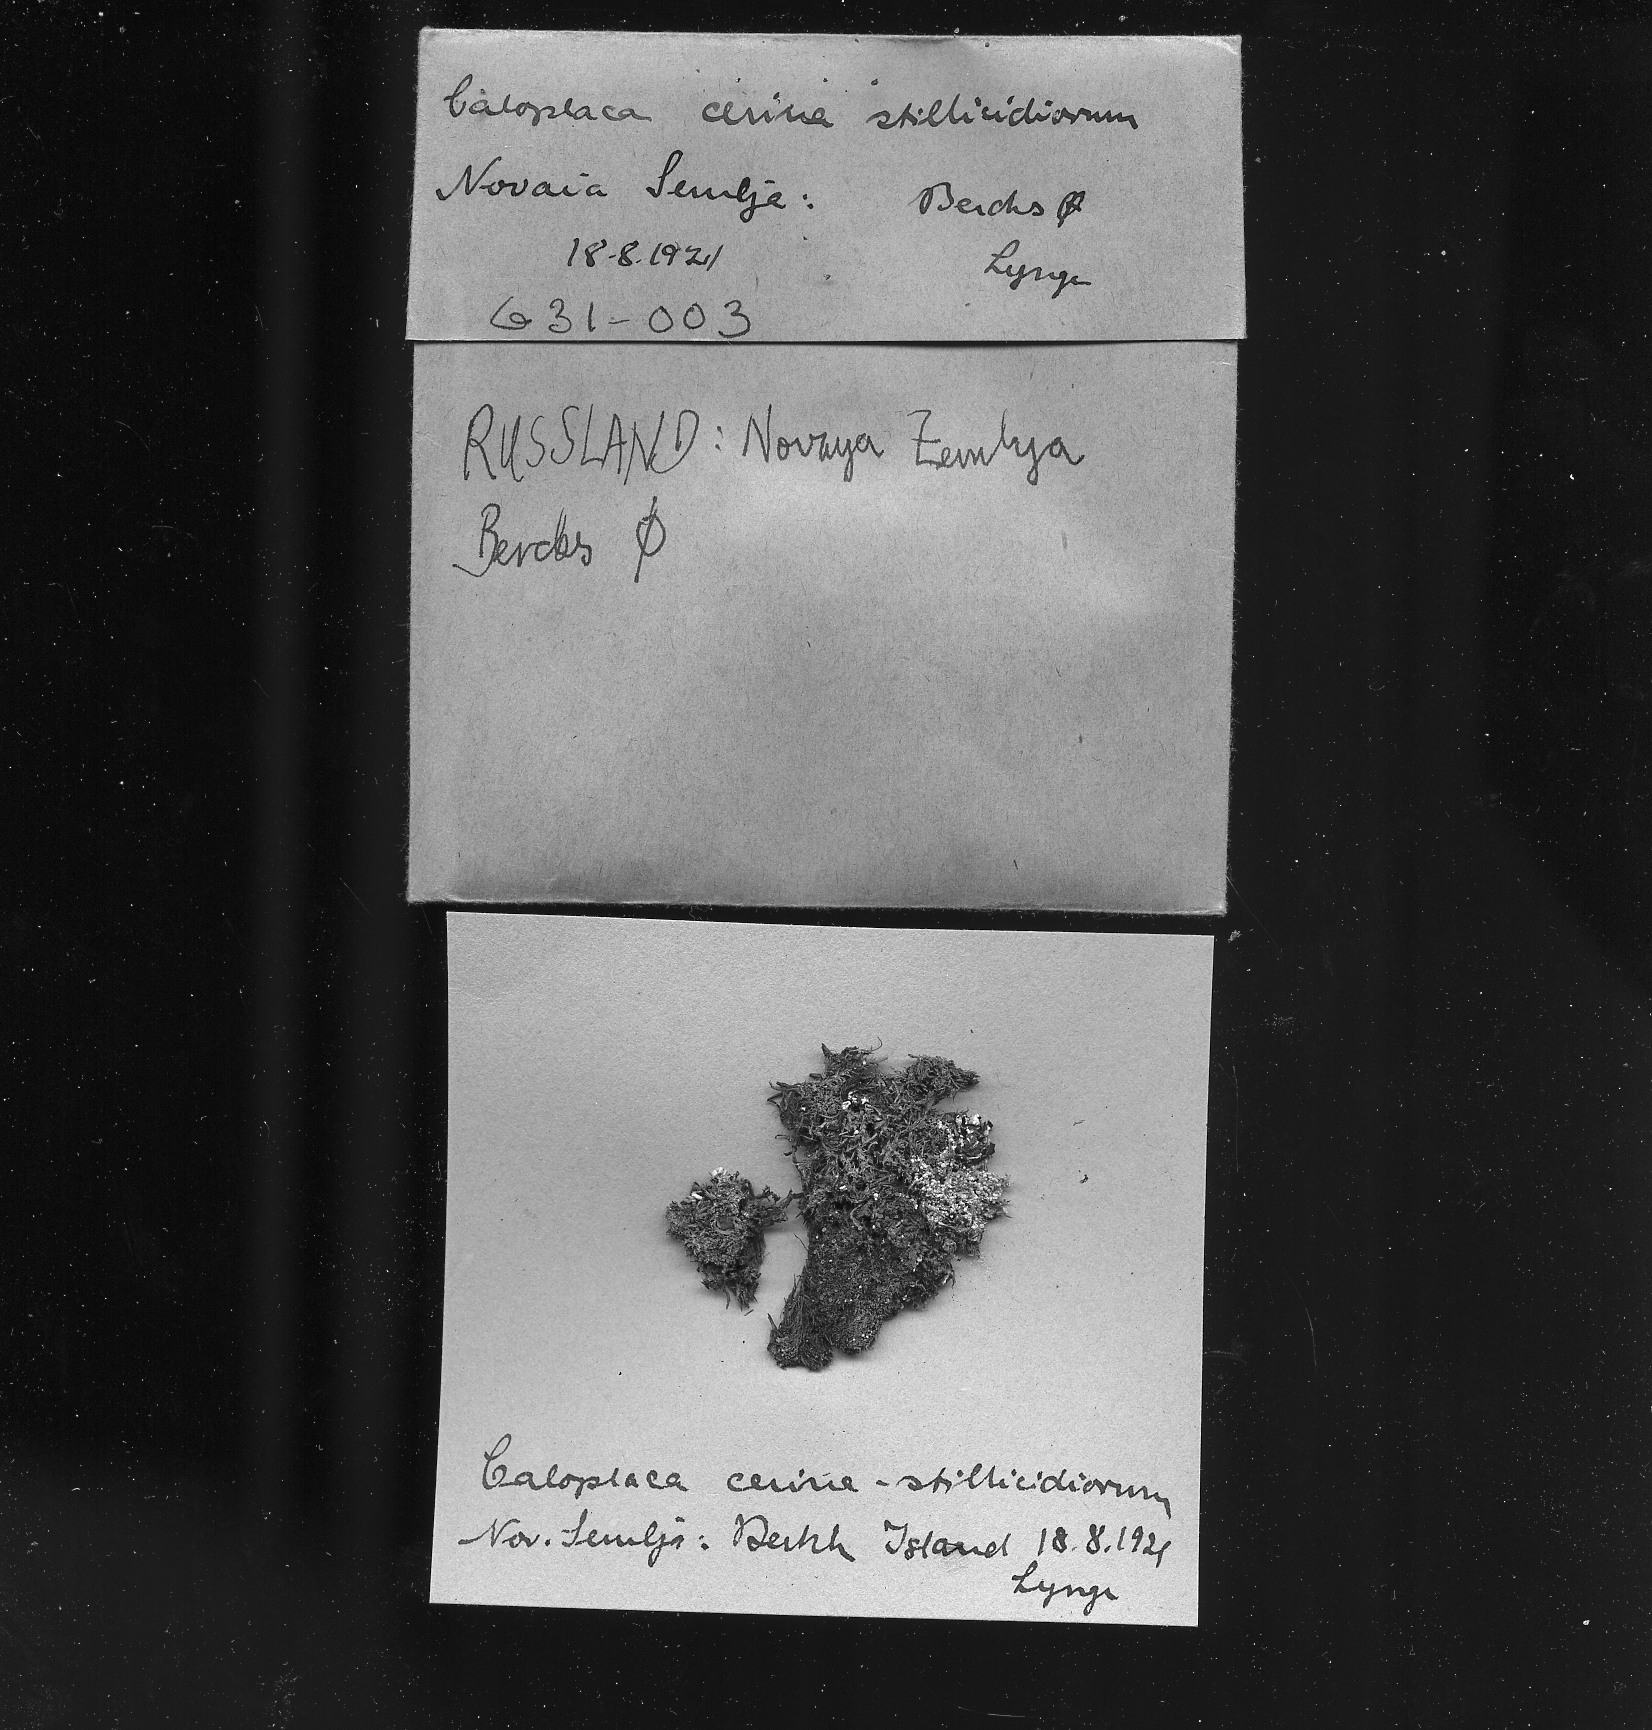 Caloplaca cerina stillicidiorum
Novaia Semlja: Berchs Ø
18.8.1921 Lynge
G31-003
RUSSLAND: Novaya Zemlya
Berchs Ø
Caloplaca cerina - stillicidiorum
Nov. Semlja: Berkh Island 18.8.1921
Lynge